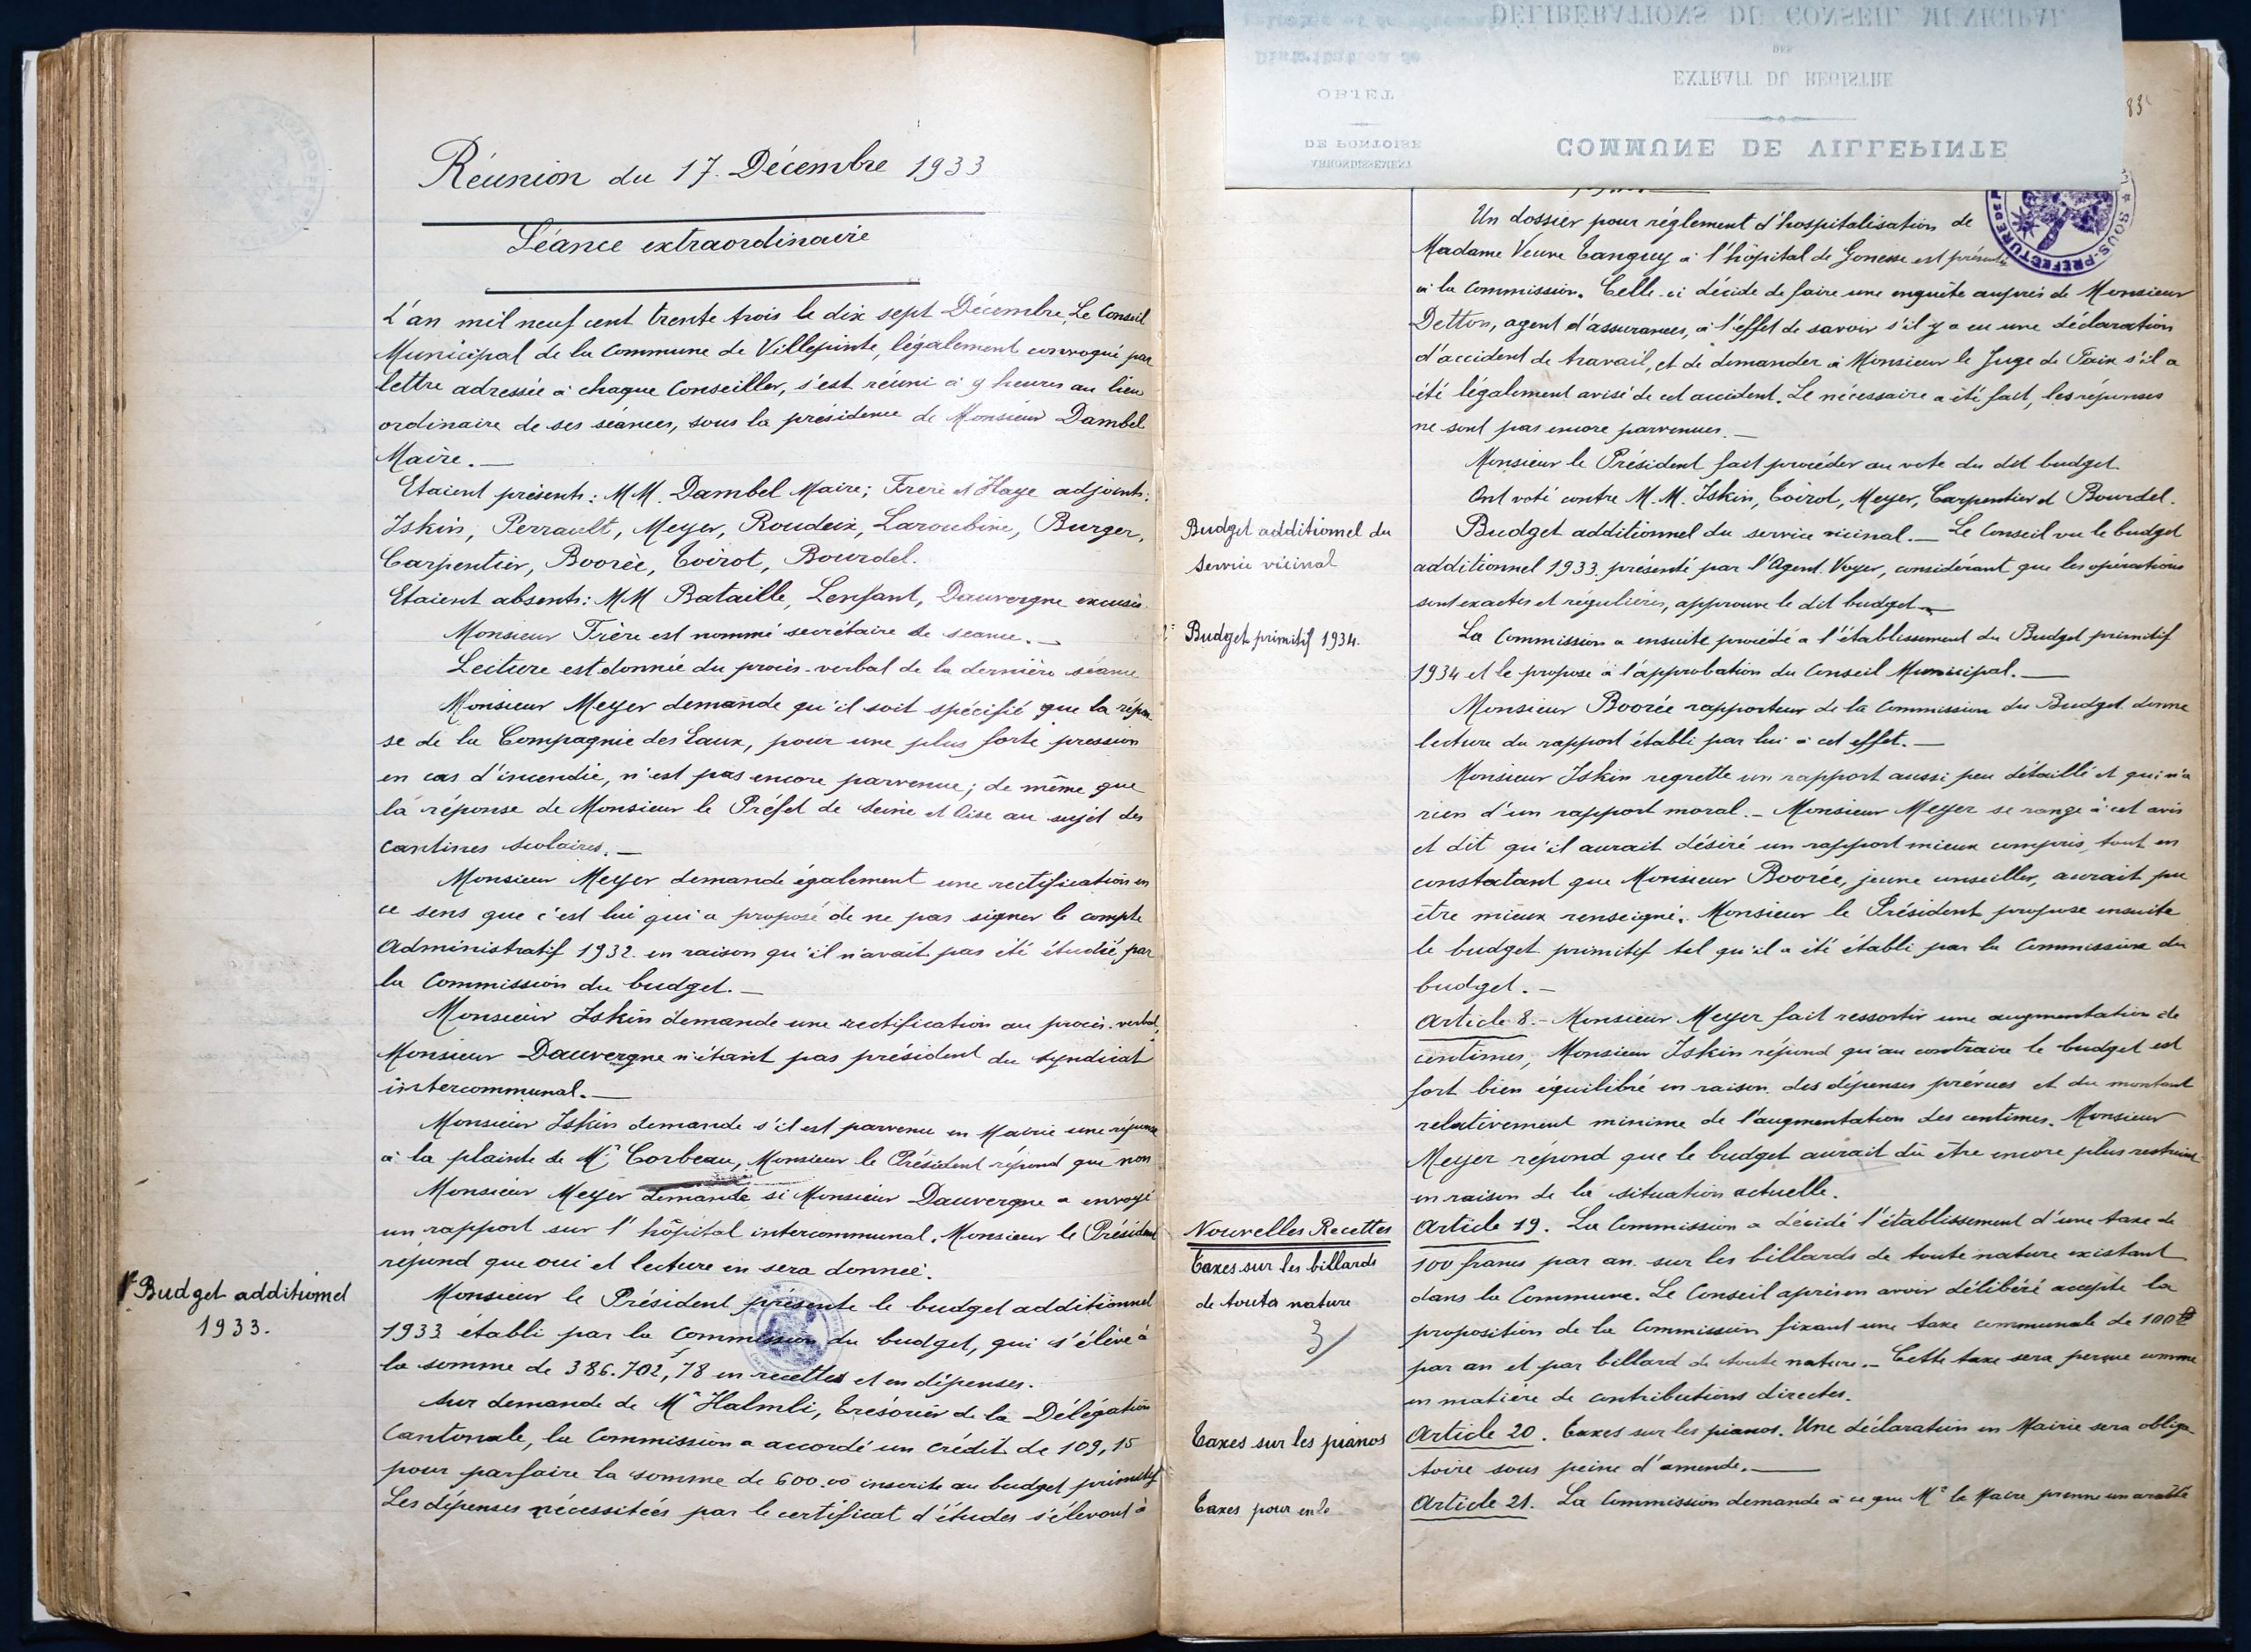 Réunion du 17 Décembre 1933
Séance extraordinaire
L'an mil neuf cent trente trois le dix sept Décembre, Le Conseil
Municipal de la Commune de Villepinte, légalement convoqué par
lettre adressée à chaque Conseiller, s'est réuni à 9 heures au lieu
ordinaire de ses séances, sous la présidence de Monsieur Dambel
Maire.—
Etaient présents: MM. Dambel Maire; Frère et Haye adjoints.
Iskin, Perrault, Meyer, Roudeix, Laroubine, Burger,
Carpentier, Boorée, Coirot, Bourdel.
Etaient absents: MM Bataille, Lenfant, Dauvergne excusés.
Monsieur Frère est nommé secrétaire de séance.—
Lecture est donnée du procès-verbal de la dernière séance
Monsieur Meyer demande qu'il soit spécifié que la répon
se de la Compagnie des Eaux, pour une plus forte pression
en cas d'incendie, n'est pas encore parvenue; de même que
la réponse de Monsieur le Préfet de Seine et Oise au sujet des
cantines scolaires.—
Monsieur Meyer demande également une rectification en
ce sens que c'est lui qui a proposé de ne pas signer le compte
Administratif 1932 en raison qu'il n'avait pas été étudié par
la Commission du budget.—
Monsieur Iskin demande une rectification au procès-verbal,
Monsieur Dauvergne n'étant pas président du syndicat
intercommunal.—
Monsieur Iskin demande s'il est parvenu en Mairie une réponse
à la plainte de Mr Corbeau, Monsieur le Président répond que non
Monsieur Meyer demande si Monsieur Dauvergne a envoyé
un rapport sur l'hôpital intercommunal. Monsieur le Président
répond que oui et lecture en sera donnée.
1° Budget additionnel
1933.
Monsieur le Président présente le budget additionnel
1933 établi par la Commission du budget, qui s'élève à
la somme de 386.702,78 en recettes et en dépenses.
Sur demande de Mr Halmli, Trésorier de la Délégation
Cantonale, la Commission a accordé un crédit de 109,15
pour parfaire la somme de 600.00 inscrite au budget primitif
Les dépenses nécessitées par le certificat d'études s'élevant à
DÉLIBÉRATIONS DU CONSEIL MUNICIPAL
DES
EXTRAIT DU REGISTRE
OBJET
DE PONTOISE
ARRONDISSEMENT
COMMUNE DE VILLEPINTE
83
SOUS-PREFECTURE
Un dossier pour réglement d'hospitalisation de
Madame Veuve Tanguy à l'hôpital de Gonesse est présenté
à la Commission. Celle-ci décide de faire une enquête auprès de Monsieur
Detton, agent d'assurances, à l'effet de savoir s'il y a eu une déclaration
d'accident de travail, et de demander à Monsieur le Juge de Paix s'il a
été légalement avisé de cet accident. Le nécessaire a été fait, les réponses
ne sont pas encore parvenues.—
Monsieur le Président fait procéder au vote du dit budget.
Ont voté contre M.M. Iskin, Coirot, Meyer, Carpentier et Bourdel.
Budget additionnel du
service vicinal
Budget additionnel du service vicinal.— Le Conseil vu le budget
additionnel 1933 présenté par l'Agent Voyer, considérant que les opérations
sont exactes et régulières, approuve le dit budget—
2° Budget primitif 1934.
La Commission a ensuite procédé à l'établissement du Budget primitif
1934 et le propose à l'approbation du Conseil Municipal.—
Monsieur Boorée rapporteur de la Commission du Budget donne
lecture du rapport établi par lui à cet effet.—
Monsieur Iskin regrette un rapport aussi peu détaillé et qui n'a
rien d'un rapport moral.— Monsieur Meyer se range à cet avis
et dit qu'il aurait désiré un rapport mieux compris, tout en
constatant que Monsieur Boorée, jeune conseiller, aurait pu
être mieux renseigné. Monsieur le Président propose ensuite
le budget primitif tel qu'il a été établi par la Commission du
budget.—
Article 8.— Monsieur Meyer fait ressortir une augmentation de
centimes, Monsieur Iskin répond qu'au contraire le budget est
fort bien équilibré en raison des dépenses prévues et du montant
relativement minime de l'augmentation des centimes. Monsieur
Meyer répond que le budget aurait dû être encore plus restreint
en raison de la situation actuelle.
Nouvelles Recettes
Taxes sur les billards
de toute nature
3/
Article 19. La Commission a décidé l'établissement d'une taxe de
100 francs par an sur les billards de toute nature existant
dans la Commune. Le Conseil après en avoir délibéré accepte la
proposition de la Commission fixant une taxe communale de 100 F
par an et par billard de toute nature.— Cette taxe sera perçue comme
en matière de contributions directes.
Taxes sur les pianos
Article 20. Taxes sur les pianos. Une déclaration en Mairie sera obliga-
toire sous peine d'amende.—
Taxes pour enle
Article 21. La Commission demande à ce que Mr le Maire prenne un arrêté